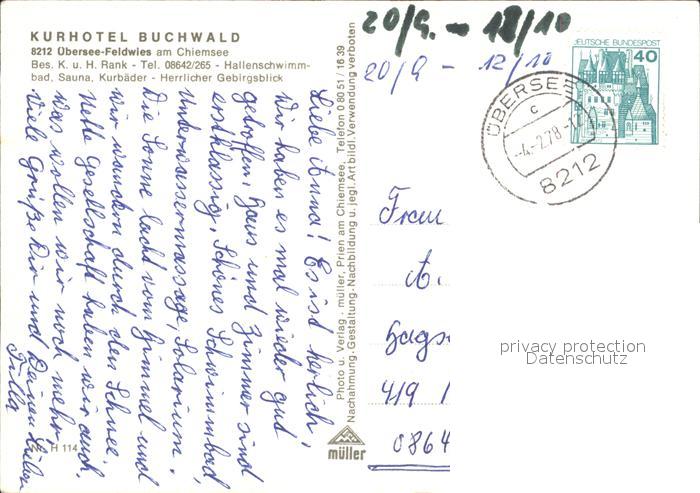 KURHOTEL BUCHWALD
8212 Übersee-Feldwies am Chiemsee
Bes. K. u. H. Rank - Tel. 08642/265 - Hallenschwimm-
bad, Sauna, Kurbäder - Herrlicher Gebirgsblick
Liebe Anna! Es ist herrlich,
wir haben es mal wieder gut
getroffen, Haus und Zimmer sind
erstklassig, Schönes Schwimmbad,
Unterwassermassage, Solarium.
Die Sonne lacht vom Himmel und
wir wandern durch den Schnee.
Nette Gesellschaft haben wir auch,
was wollen wir noch mehr,
Viele Grüße Dir und Deinen Lieben
Tilla
H 114
Photo u. Verlag - müller, Prien am Chiemsee, Telefon 0 80 51 / 16 39
Nachahmung-Gestaltung-Nachbildung u. jegl. Art bildl. Verwendung verboten
müller
20/9. - 12/10
20/9 - 12/10
DEUTSCHE BUNDESPOST
40
ÜBERSEE
c
-4.-2.78-12
8212
Frau
A.
Hags
419
0864
privacy protection
Datenschutz